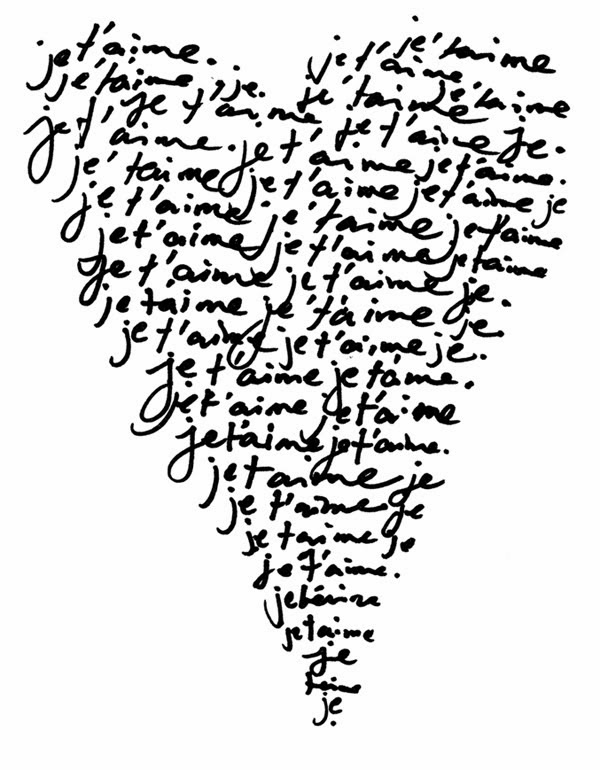 je t'aime. je t'aime je t'aime
je t'aime, je. je t'aime je t'aime
je t'aime je t'aime je.
je t'aime. je t'aime je t'aime.
je t'aime je t'aime je t'aime je
je t'aime je t'aime je t'aime
je t'aime je t'aime je taime
je t'aime je t'aime je.
je taime je t'aime je.
je t'aime je t'aime je.
je t'aime je t'aime.
je t'aime je t'aime
je t'aime je t'aime.
je taime je
je t'aime je
je taime je
je t'aime.
je
je taime
je
taime
je.